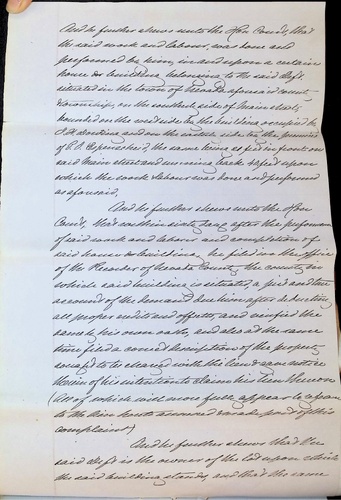 And he further shews unto the Hon Court, that
the said work and labour, was done and
performed by him, in and upon a certain
house or building belonging to the said deft
situated in the town of Nevada aforesaid
Township, on the side of Main street,
bounded on the west side by the building occupied by
and on the side by the premises
of the same being 25 feet in front on
said Main street and running back feet upon
which the work & labour was done and performed
as aforesaid.
And he further shews unto the Hon
Court, that within sixty days after the performance
of said work and labour and completion of
said house or building, he filed in the office
of the Recorder of Nevada County, the county in
which said building is situated, a just and true
account of the demand due him after deducting
all proper credits and offsets, and verified the
same by his own oath, and also at the same
time filed a correct description of the property
to be charged with the lien & gave notice
therein of his intention to claim his lien thereon
(all of which will more fully appear
to the hereto annexed made part of this
complaint)
And he further shews that the
said deft is the owner of the lot upon which
the said building stands, and that the same